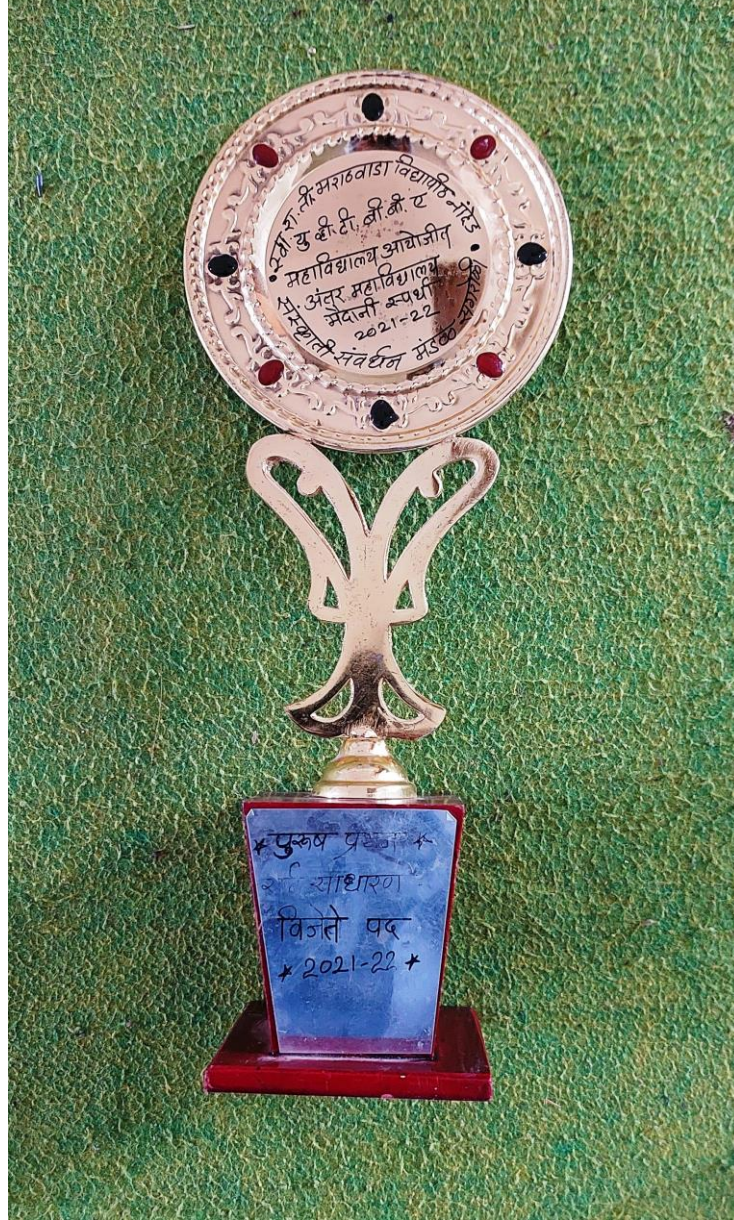 स्वा. रा. ती. मराठवाडा विद्यापीठ नांदेड
महाविद्यालय आयोजीत
अंतर महाविद्यालय
मैदानी स्पर्धा
2021-22
संस्कृती संवर्धन मंडळ
* पुरूष *
साधारण
विजेते पद
* 2021-22 *